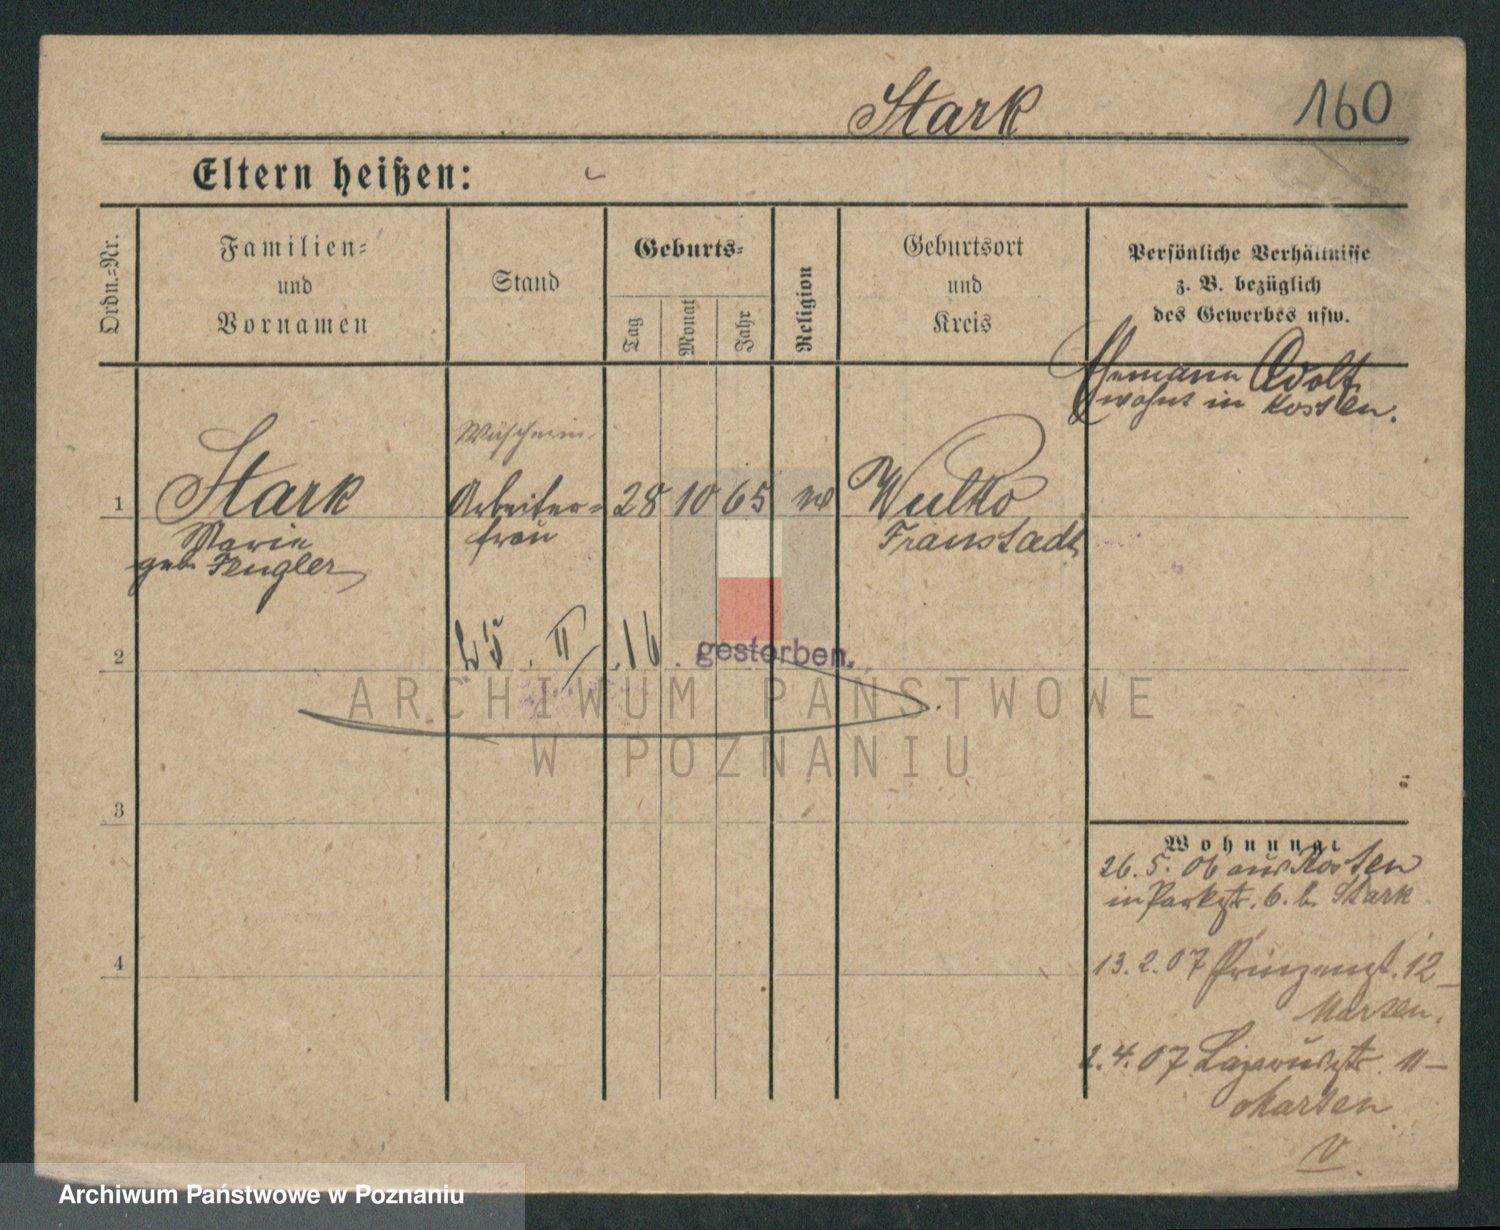 Stark
160
Eltern heißen:
Ordn.=Nr.
Familien=
und
Vornamen
Stand
Geburts=
Tag
Monat
Jahr
Religion
Geburtsort
und
Kreis
Persönliche Verhältnisse
z. B. bezüglich
des Gewerbes usw.
Ehemann Adolf
wohnt in Kosten.
Wäscherin
1
Stark
Arbeiter=
28 10 65
Marie
frau
Fraustadt
geb. Fengler
2
25. II. 16. gestorben.
ARCHIWUM PAŃSTWOWE
W POZNANIU
3
Wohnung:
26. 5. 06 aus Kosten
in Parkstr. 6. b. Stark
4
13. 2. 07 Prinzenst. 12
2. 4. 07 Lazarusstr. 11
Archiwum Państwowe w Poznaniu